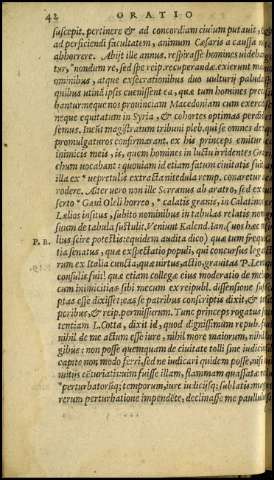 42 ORATIO
suscepit, pertinere & ad concordiam ciuium putauit, &
ad perficiendi facultatem, animum Cæsaris a caussa n
abhorrere. Abijt ille annus. respirasse homines videban
tur, *nondum re, sed spe reip. recuperandæ. exierunt
ominibus, atque exsecrationibus duo vulturij palud
quibus vtinã ipsis euenissent ea, quæ tum homines prec
bantur neque nos prouinciam Macedoniam cum exerc
neque equitatum in Syria, & cohortes optimas perdi
semus. Ineũt magistratum tribuni pleb. qui se omnes de
promulgaturos confirmarant. ex his princeps emitur
inimicis meis, is, quem homines in luctu irridentes Gra
chum vocabant: quoniam id etiam fatum ciuitatis fuit
illa ex * uepretulis extracta nitedula remp. conaretur
rodere. Alter uero non ille Serranus ab aratro, sed ex
serto * Gaui Oleli horreo, * calatis granis, in Calatino
Lælios insitus, subito nominibus in tabulas relatis no
suum de tabula sustulit. Veniunt Kalend. Ian. (uos hæc
P. R. lius scire potestis: equidem audita dico) quæ tum freq
tia senatus, quæ exspectatio populi, qui concursus lega
rum ex Italia cuncta, quæ uirtus, actio, grauitas P. Len
consulis fuit! quæ etiam collegæ eius moderatio de me
cum inimicitias sibi mecum ex reipubl. dissensione
ptas esse dixisset; eas se patribus conscriptis dixit, &
poribus, & reip. permissurum. Tunc princeps rogatus
tentiam L. Cotta, dixit id, quod dignissimum repub.
nihil de me actum esse iure, nihil more maiorum, nihil
gibus: non posse quemquam de ciuitate tolli sine
capite non modo ferri, sed ne iudicari quidem posse,
mitijs cẽturiatis: uim fuisse illam, flammam quassatæ
*perturbatorũq; temporum, iure iudicijsq; sublatis:
rerum perturbatione impendẽte, declinasse me paullu